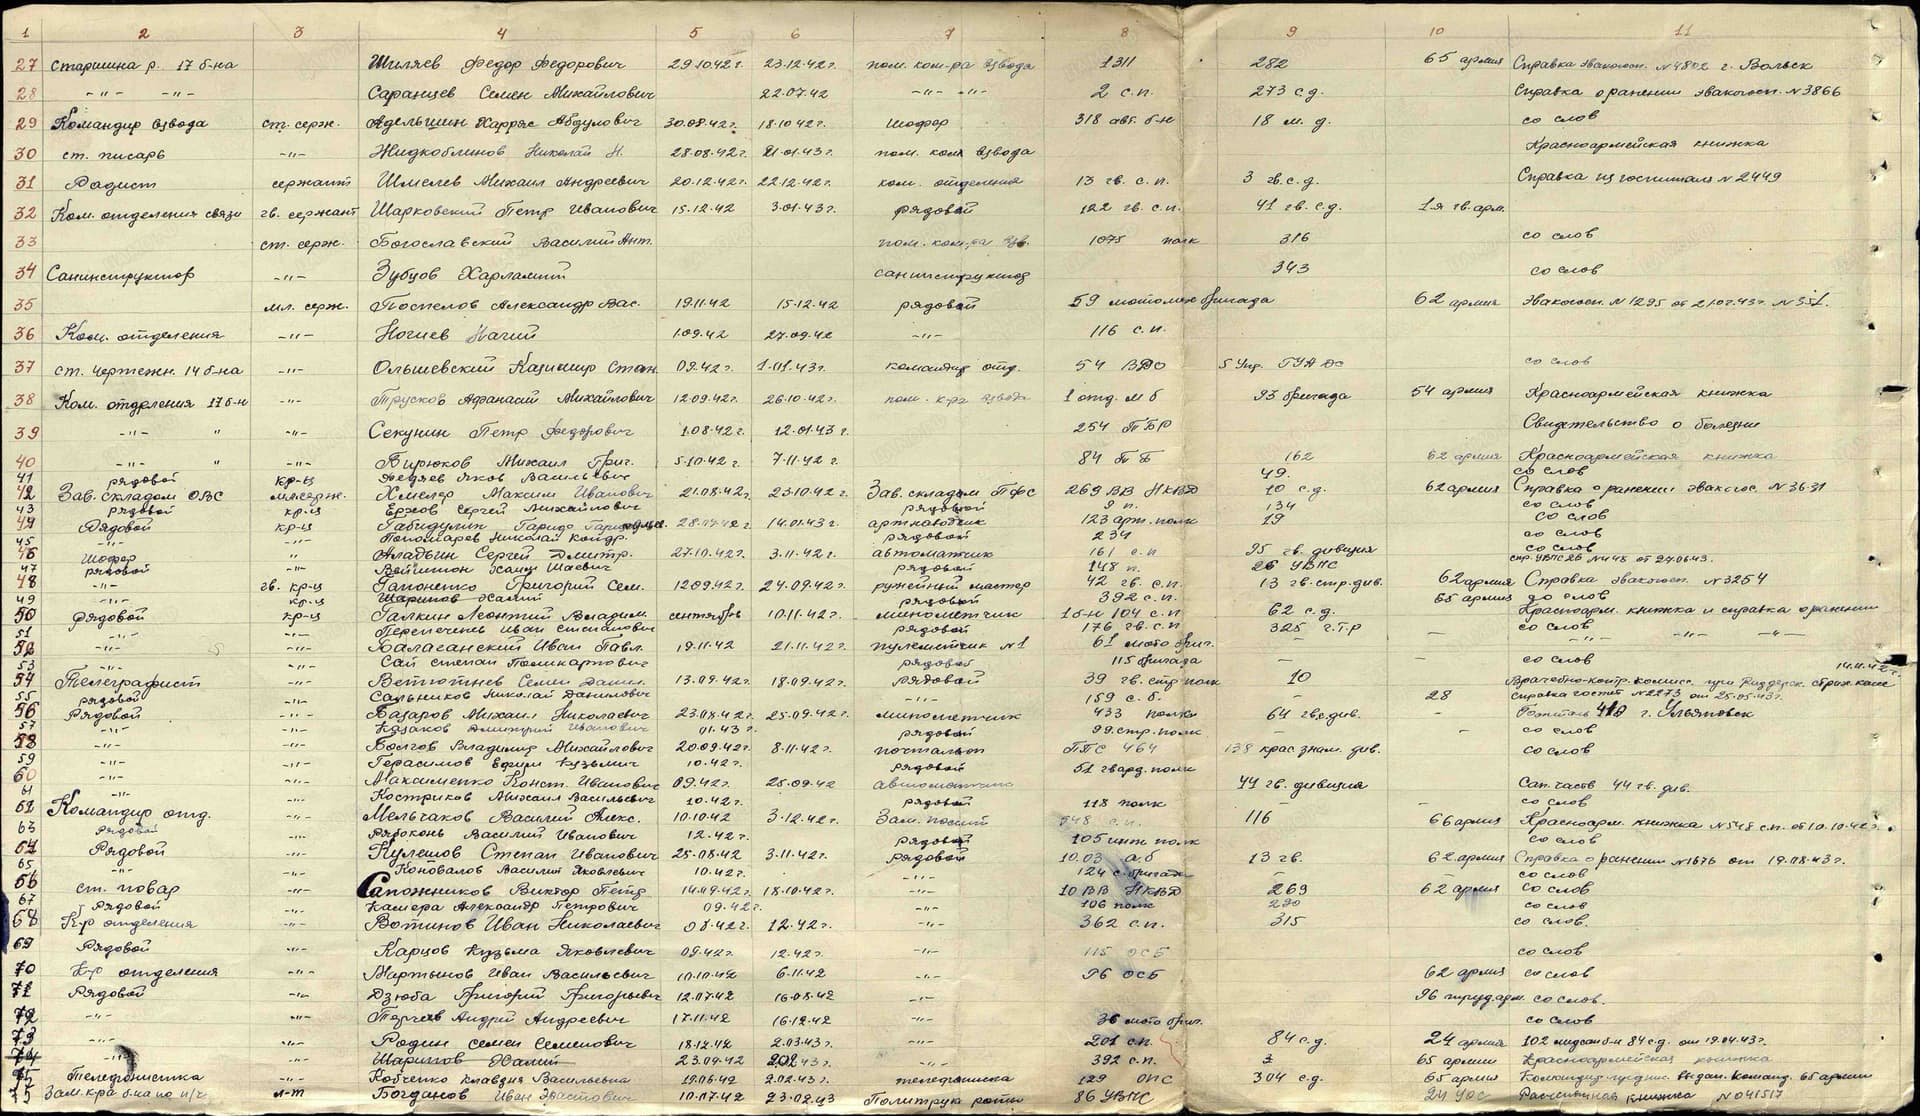 1 2 3 4 5 6 7 8 9 10 11
27 Старшина р. 17 б-на Шиляев Федор Федорович 29.10.42г. 23.12.42г. пом. ком-ра взвода 1311 282 65 армия Справка эвакогосп. N4802 г. Вольск
28 -"- -"- Саранцев Семен Михайлович 22.07.42 -"- -"- 2 с.п. 273 с.д. Справка о ранении эвакогосп. N3866
29 Командир взвода ст. серж. Адельшин Харрас Абдулович 30.08.42г. 18.10.42г. шофер 318 авт. б-н 18 м.д. со слов
30 ст. писарь -"- Жидкоблинов Николай Н. 28.08.42г. 21.01.43г. пом. ком. взвода Красноармейская книжка
31 Радист сержант Шмелев Михаил Андреевич 20.12.42г. 22.12.42г. ком. отделения 13 гв. с.п. 3 гв.с.д. Справка из госпиталя N2449
32 Ком. отделения связи гв. сержант Шарковский Петр Иванович 15.12.42 3.01.43г. рядовой 122 гв. с.п. 41 гв. с.д. 1я гв.арм.
33 ст. серж. Богославский Василий Ант. пом. ком-ра взв. 1075 полк 316 со слов
34 Санинструктор -"- Зубцов Харлампий санинструктор 343 со слов
35 мл. серж. Поспелов Александр Вас. 19.11.42 15.12.42 рядовой 59 мотомех бригада 62 армия Эвакогосп. N1295 от 2.107.43г. N351.
36 Ком. отделения -"- Ногиев Нагий 1.09.42 27.09.42 -"- 116 с.п.
37 ст. чертежн. 14 б-на -"- Ольшевский Казимир Стан. 09.42г. 1.01.43г. командир отд. 54 ВДО 5 Упр. ГУАДС со слов
38 Ком. отделения 17 б-н -"- Трусков Афанасий Михайлович 12.09.42г. 26.10.42г. пом. к-ра взвода 1 отд. м б 93 бригада 54 армия Красноармейская книжка
39 -"- " -"- Секунин Петр Федорович 1.08.42г. 12.01.43г. 254 ТБР Свидетельство о болезни
40 -"- " -"- Бирюков Михаил Григ. 5.10.42г. 7.11.42г. 84 ТБ 162 62 армия Красноармейская книжка
41 рядовой кр-ц Федяев Яков Васильевич 49. со слов
42 Зав. складом ОВС мл.серж. Хмелев Максим Иванович 21.08.42г. 23.10.42г. Зав. складом ПФС 269 ВВ НКВД 10 с.д. 62 армия Справка о ранении эвакогос. N3631
43 рядовой кр-ц Ершов Сергей Михайлович рядовой 9 п. 134 со слов
44 Рядовой кр-ц Габидулин Гаридо 14.01.43г. артнаводчик 123 арт. полк 19 со слов
45 -"- -"- Пономарев Николай Кондр. рядовой 234 со слов
46 Шофер " Аладьин Сергей Дмитр. 27.10.42г. 3.11.42г. автоматчик 161 с.п 95 гв. дивизия со слов
47 рядовой -"- Вейцман Хаиц Шаевич рядовой 148 п. 26 УВПС спр. УВПС 26 N448 от 27.06.43.
48 -"- гв. кр-ц Гапоненко Григорий Сем. 12.09.42г. 24.09.42г. ружейный мастер 42 гв. с.п. 13 гв.стр.див. 62 армия Справка эвакогосп. N3254
49 -"- кр-ц Шарипов Халий рядовой 392 с.п. 65 армия до слов
50 Рядовой кр-ц Галкин Леонтий Владим. сентябрь 10.11.42г. минометчик 1 б-н 104 с.п. 62 с.д. Красноарм. книжка и справка о ранении
51 -"- -"- Перепечень Иван Степанович рядовой 176 гв. с.п 325 г.Т.Р — со слов
52 -"- -"- Балаганский Иван Павл. 19.11.42 21.11.42г. пулеметчик N1 61 мото бриг. -"- -"- -"-
53 -"- -"- Сай Степан Поликарпович рядовой 115 бригада — — со слов
54 Телеграфист -"- Ветютнев Семен Данил. 13.09.42г. 18.09.42г. рядовой 39 гв. стр полк 10 Врачебно-контр. комисс. при Риддерск. 14.11.42г.
55 рядовой -"- Сальников Николай Данилович -"- 159 с.б. — 28 Справка госпит N2273 от 25.05.43г.
56 Рядовой -"- Базаров Михаил Николаевич 23.08.42г. 25.09.42г. минометчик 433 полк 64 гв.див. - Госпиталь 418 г. Ульяновск
57 -"- -"- Казаков Дмитрий Иванович 01.43г. рядовой 99 стр. полк — — со слов
58 -"- -"- Болгов Владимир Михайлович 20.09.42г. 8.11.42г. почтальон ППС 464 138 краснам. див. со слов
59 -"- -"- Герасимов Ефим Кузьмич 10.42г. рядовой 51 гвард. полк
60 -"- -"- Максименко Конст. Иванович 09.42г. 25.09.42 автоматчик 44 гв. дивизия Сап. часов 44 гв. див.
61 -"- -"- Костриков Михаил Васильевич 10.42г. рядовой 118 полк — — со слов
62 Командир отд. -"- Мельчаков Василий Алекс. 10.10.42 3.12.42г. Зам. 548 с.п. 116 66 армия Красноарм. книжка N548 с.п. от 10.10.42г.
63 рядовой -"- Рябоконь Василий Иванович 12.42г. рядовой 105 инж полк — — со слов
64 Рядовой -"- Кулешов Степан Иванович 25.08.42 3.11.42г. рядовой 10.03 а.б 13 гв. 62 армия Справка о ранении N1676 от 19.08.43г.
65 -"- -"- Коновалов Василий Яковлевич 10.42г. -"- 124 с. бригада — — со слов
66 ст. повар -"- Сапожников Виктор Петр 14.09.42г. 18.10.42г. -"- 10 ВВ НКВД 269 62 армия со слов
67 Рядовой -"- Камера Александр Петрович 09.42г. 106 полк 290 со слов
68 К-р отделения -"- Вотинов Иван Николаевич 08.42г. 12.42г. -"- 362 с.п. 315 со слов.
69 Рядовой -"- Карцов Кузьма Яковлевич 09.42г. 12.42г. -"- 115 ОСБ со слов
70 К-р отделения -"- Мартынов Иван Васильевич 10.10.42 6.11.42 -"- 96 ОСБ 62 армия со слов
71 Рядовой -"- Дзюба Григорий Григорьевич 12.07.42 16.08.42 -"- 96 труд.арм. со слов.
72 -"- -"- Андрей Андреевич 17.11.42 16.12.42 -"- 36 мото бриг. со слов
73 -"- -"- Родин Семен Семенович 18.12.42 2.03.43г. -"- 201 с.п. 84 с.д. 24 армия 102 медсанб-н 84 с.д. от 19.04.43г.
74 -"- -"- Шарипов Халий 23.09.42 2.02.43г. -"- 392 с.п. 65 армии Красноармейская книжка
75 Телефонистка -"- Кобченко Клавдия Васильевна 19.06.42 2.02.43г. телефонистка 129 ОПС 304 с.д. 65 армия Командир. предпис. выдан. команд. 65 армии
75 Зам. к-ра б-на по п/ч. л-т Богданов Иван Эрастович 10.17.42 23.02.43 Политрук роты 86 УВПС 24 УОС Расчетная книжка N041517